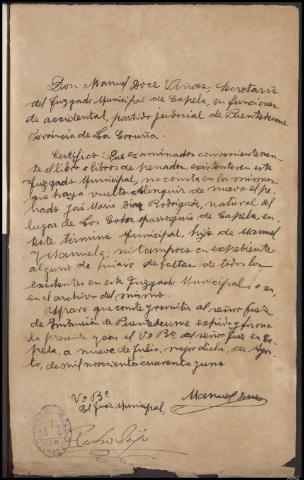 Don Manuel Doce Viñas, Secretario
del Juzgado Municipal de Capela, en funciones
de accidental, partido judicial de Puentedeume
Provincia de La Coruña.
Certifico: Que examinados convenientemen-
te el libro o libros de penados existentes en este
Juzgado Municipal, no consta en los mismos
que haya vuelto a delinquir de nuevo el pe-
nado José María Rodríguez, natural del
lugar de Los Cotos parroquia de Capela, en
este término Municipal, hijo de Manuel
y Manuela; ni tampoco en expediente
alguno de juicio de faltas de todos los
existentes en este Juzgado Municipal o en
en el archivo del mismo.
Y para que conste y remitir al señor Juez
de Instrucción de Puentedeume expido y firmo
la presente y con el Vº Bº del señor Juez en Ca-
pela, a nueve de Julio, mejor dicho, de Agos-
to, de mil novecientos cuarenta y uno.
Vº Bº
El Juez Municipal
Manuel Doce